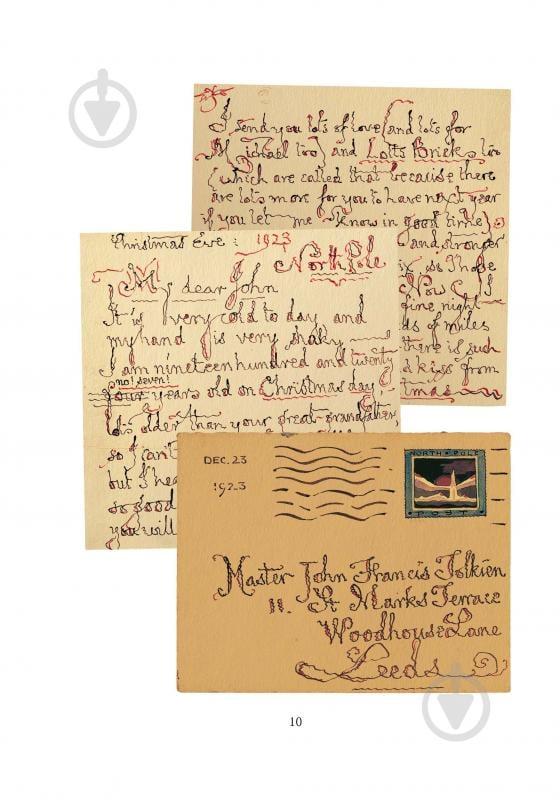 I send you lots of love (and lots for
Michael too) and Lotts Bricks too
(which are called that because there
are lots more for you to have next year
if you let me know in good time)
and stronger
so those
Now
fine night
ds of miles
there is such
d kiss from
tmas
Christmas Eve: 1923
North Pole
My dear John
It is very cold to day and
my hand is very shaky
I am nineteen hundred and twenty
no! seven!
four years old on Christmas day,
lots older than your great grandfather,
so I can't
but I hea
so good
you will
DEC. 23
1923
NORTH · POLE
· POST ·
Master John Francis Tolkien
11. St Marks Terrace
Woodhouse Lane
Leeds
10